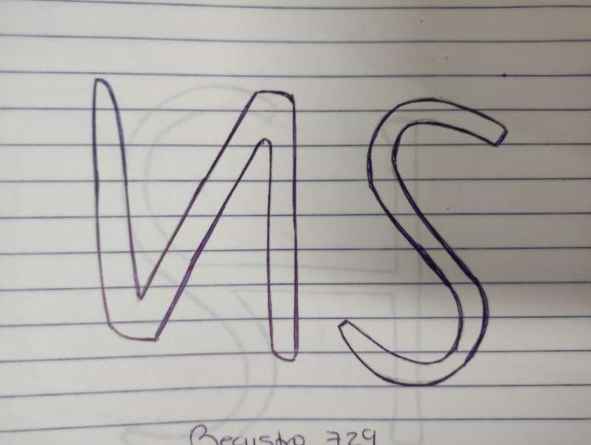 ИS
Registro 729